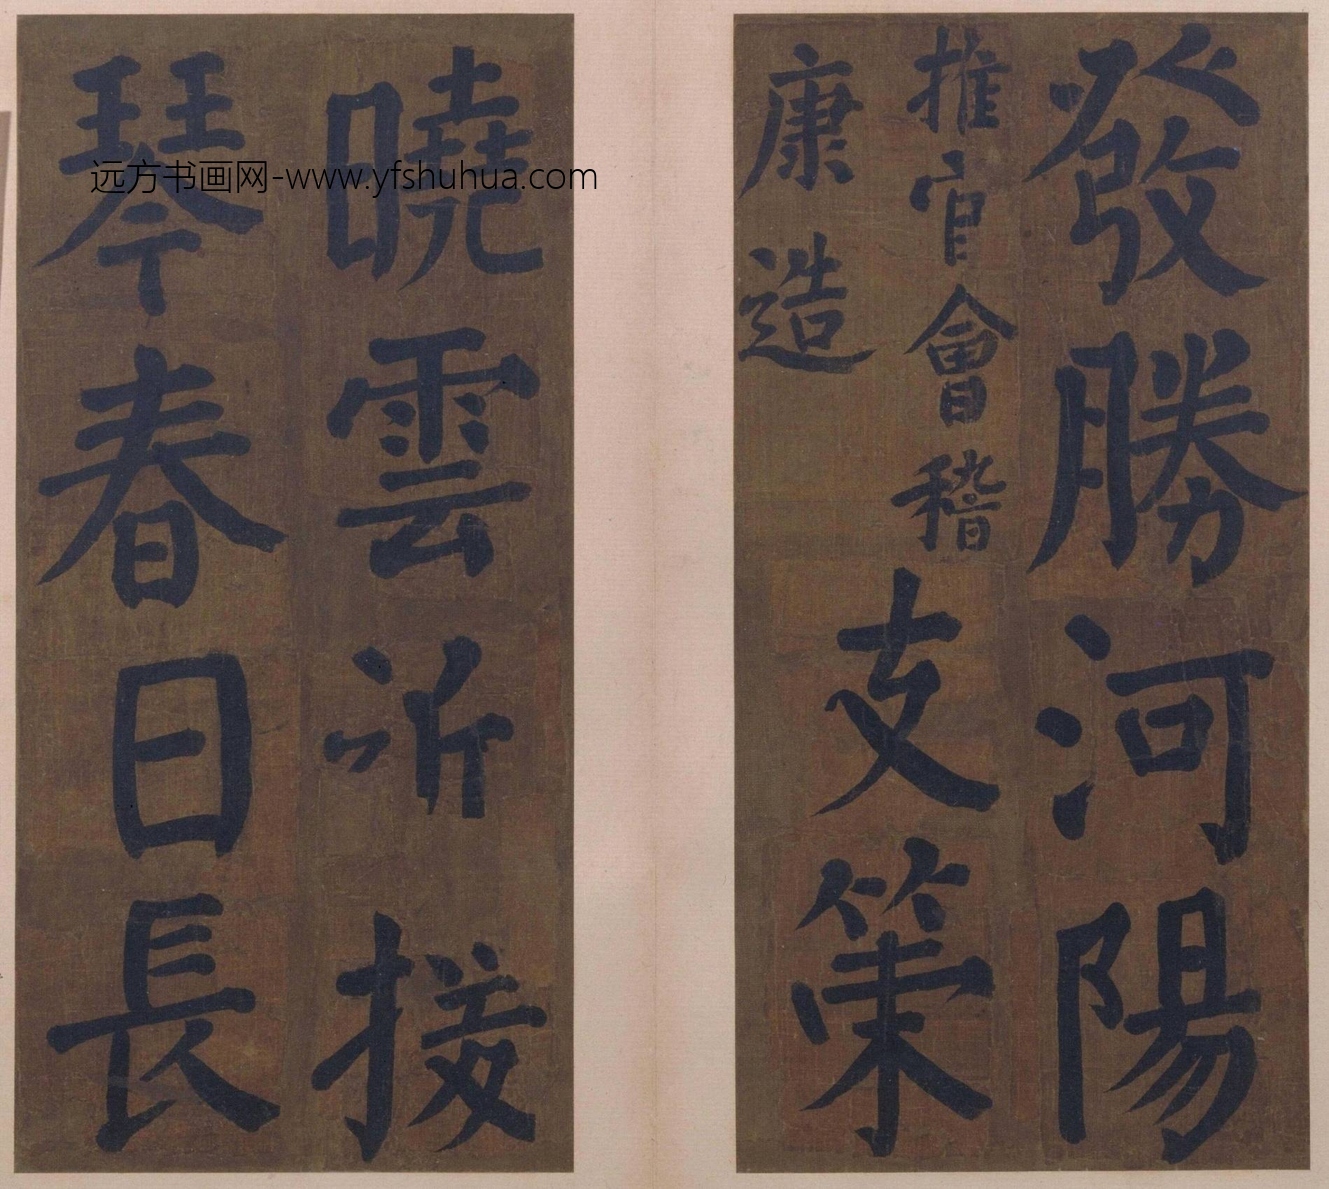 發勝河陽
推官會稽
康造
支策
曉雲近接
琴春日長
远方书画网-www.yfshuhua.com